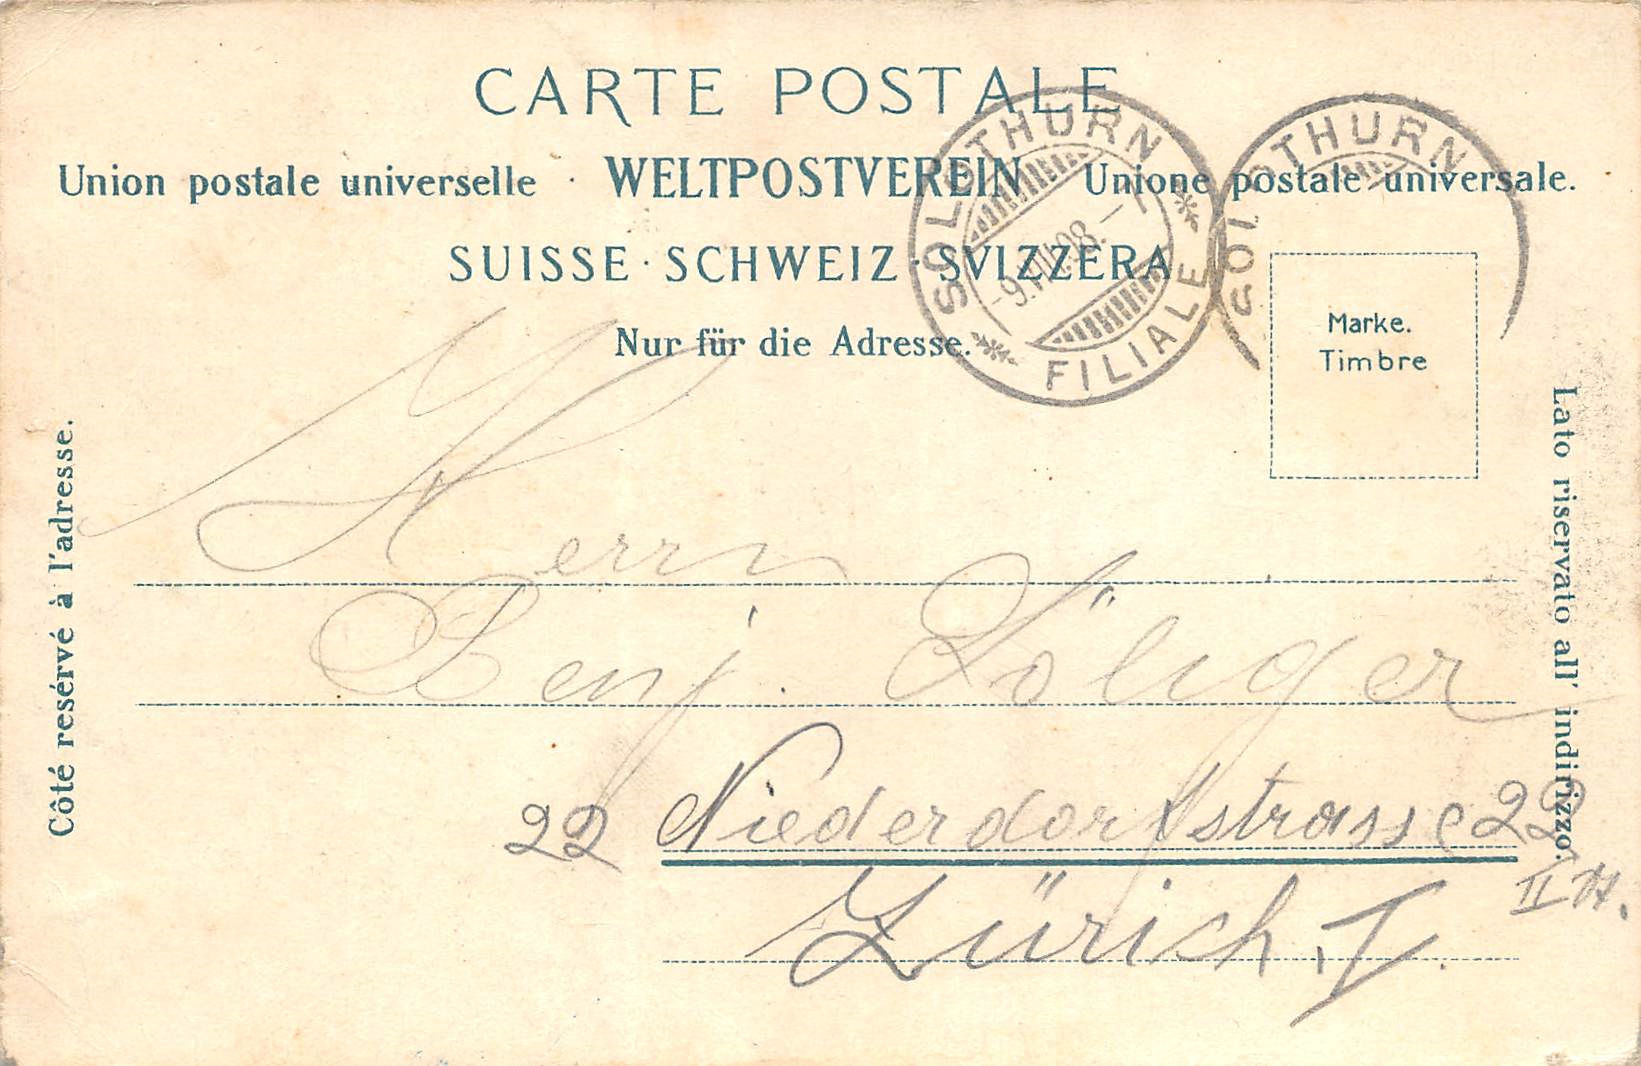 CARTE POSTALE
Union postale universelle · WELTPOSTVEREIN · Unione postale universale.
SUISSE · SCHWEIZ · SVIZZERA
Nur für die Adresse.
SOLOTHURN
FILIALE
-9.VIII.08.-7
SOLOTHURN
Marke.
Timbre
Côté resérvé à l'adresse.
Lato riservato all' indirizzo.
Herrn
Benj. Söliger
22 Niederdorfstrasse 22
II
Zürich, I.